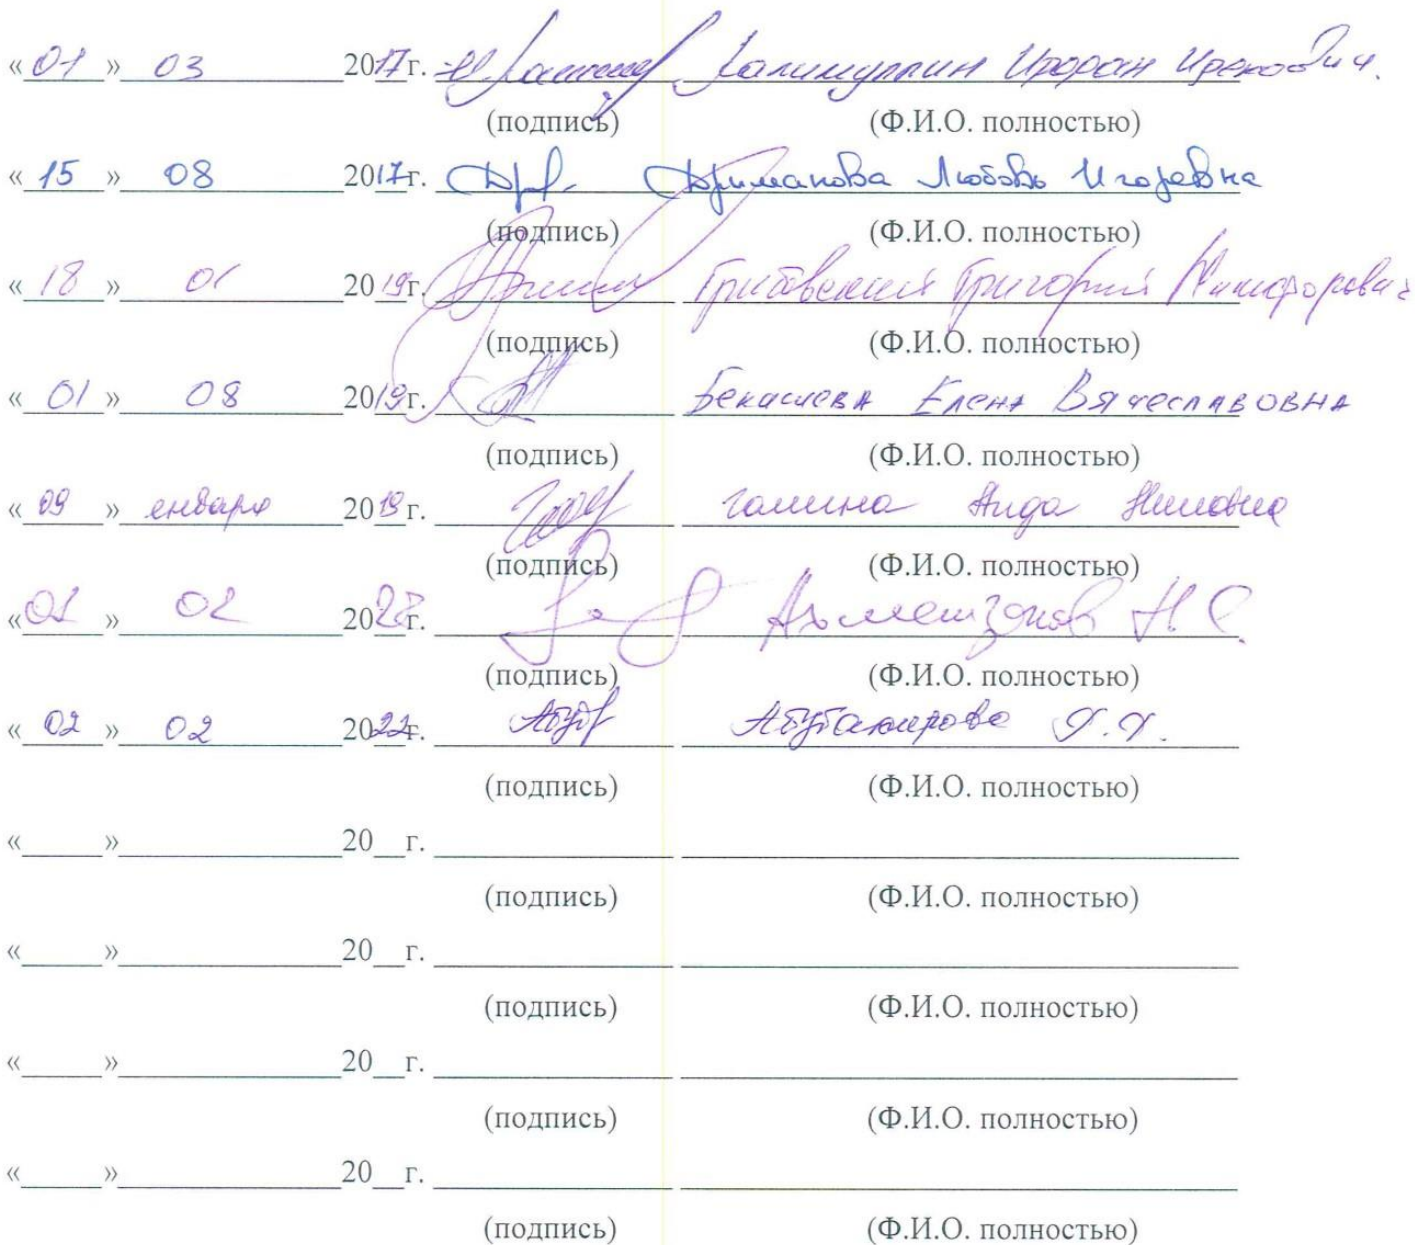 « 01 » 03 2017г. Халимуллин Ирекович.
(подпись) (Ф.И.О. полностью)
« 15 » 08 2017г. Любовь Игоревна
(подпись) (Ф.И.О. полностью)
« 18 » 01 2019г. Грибовский Григорий Никифорович
(подпись) (Ф.И.О. полностью)
« 01 » 08 2019г. Бекишева Елена Вячеславовна
(подпись) (Ф.И.О. полностью)
« 09 » января 2019г. Галина Аида Ниловна
(подпись) (Ф.И.О. полностью)
« 01 » 02 20 г. Н.
(подпись) (Ф.И.О. полностью)
« 02 » 02 2022г. Абубакирова
(подпись) (Ф.И.О. полностью)
«_____»______________20__г. ________________ ____________________
(подпись) (Ф.И.О. полностью)
«_____»______________20__г. ________________ ____________________
(подпись) (Ф.И.О. полностью)
«_____»______________20__г. ________________ ____________________
(подпись) (Ф.И.О. полностью)
«_____»______________20__г. ________________ ____________________
(подпись) (Ф.И.О. полностью)